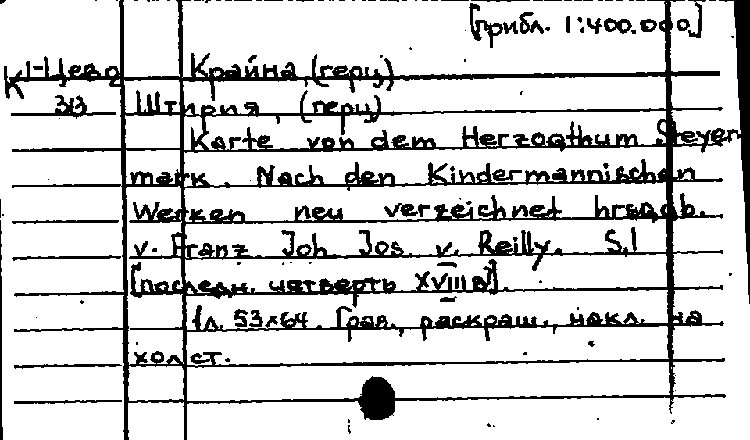 [прибл. 1:400.000.]
К 1-Цевр Крайна, (герц)
313 Штирия, (герц)
Karte von dem Herzogthum Steyer-
mark. Nach den Kindermannischen
Werken neu verzeichnet hrsggb.
v. Franz Joh. Jos. v. Reilly. S.l
[последн. четверть XVIII в].
1л. 53×64. Грав., раскраш., накл. на
холст.